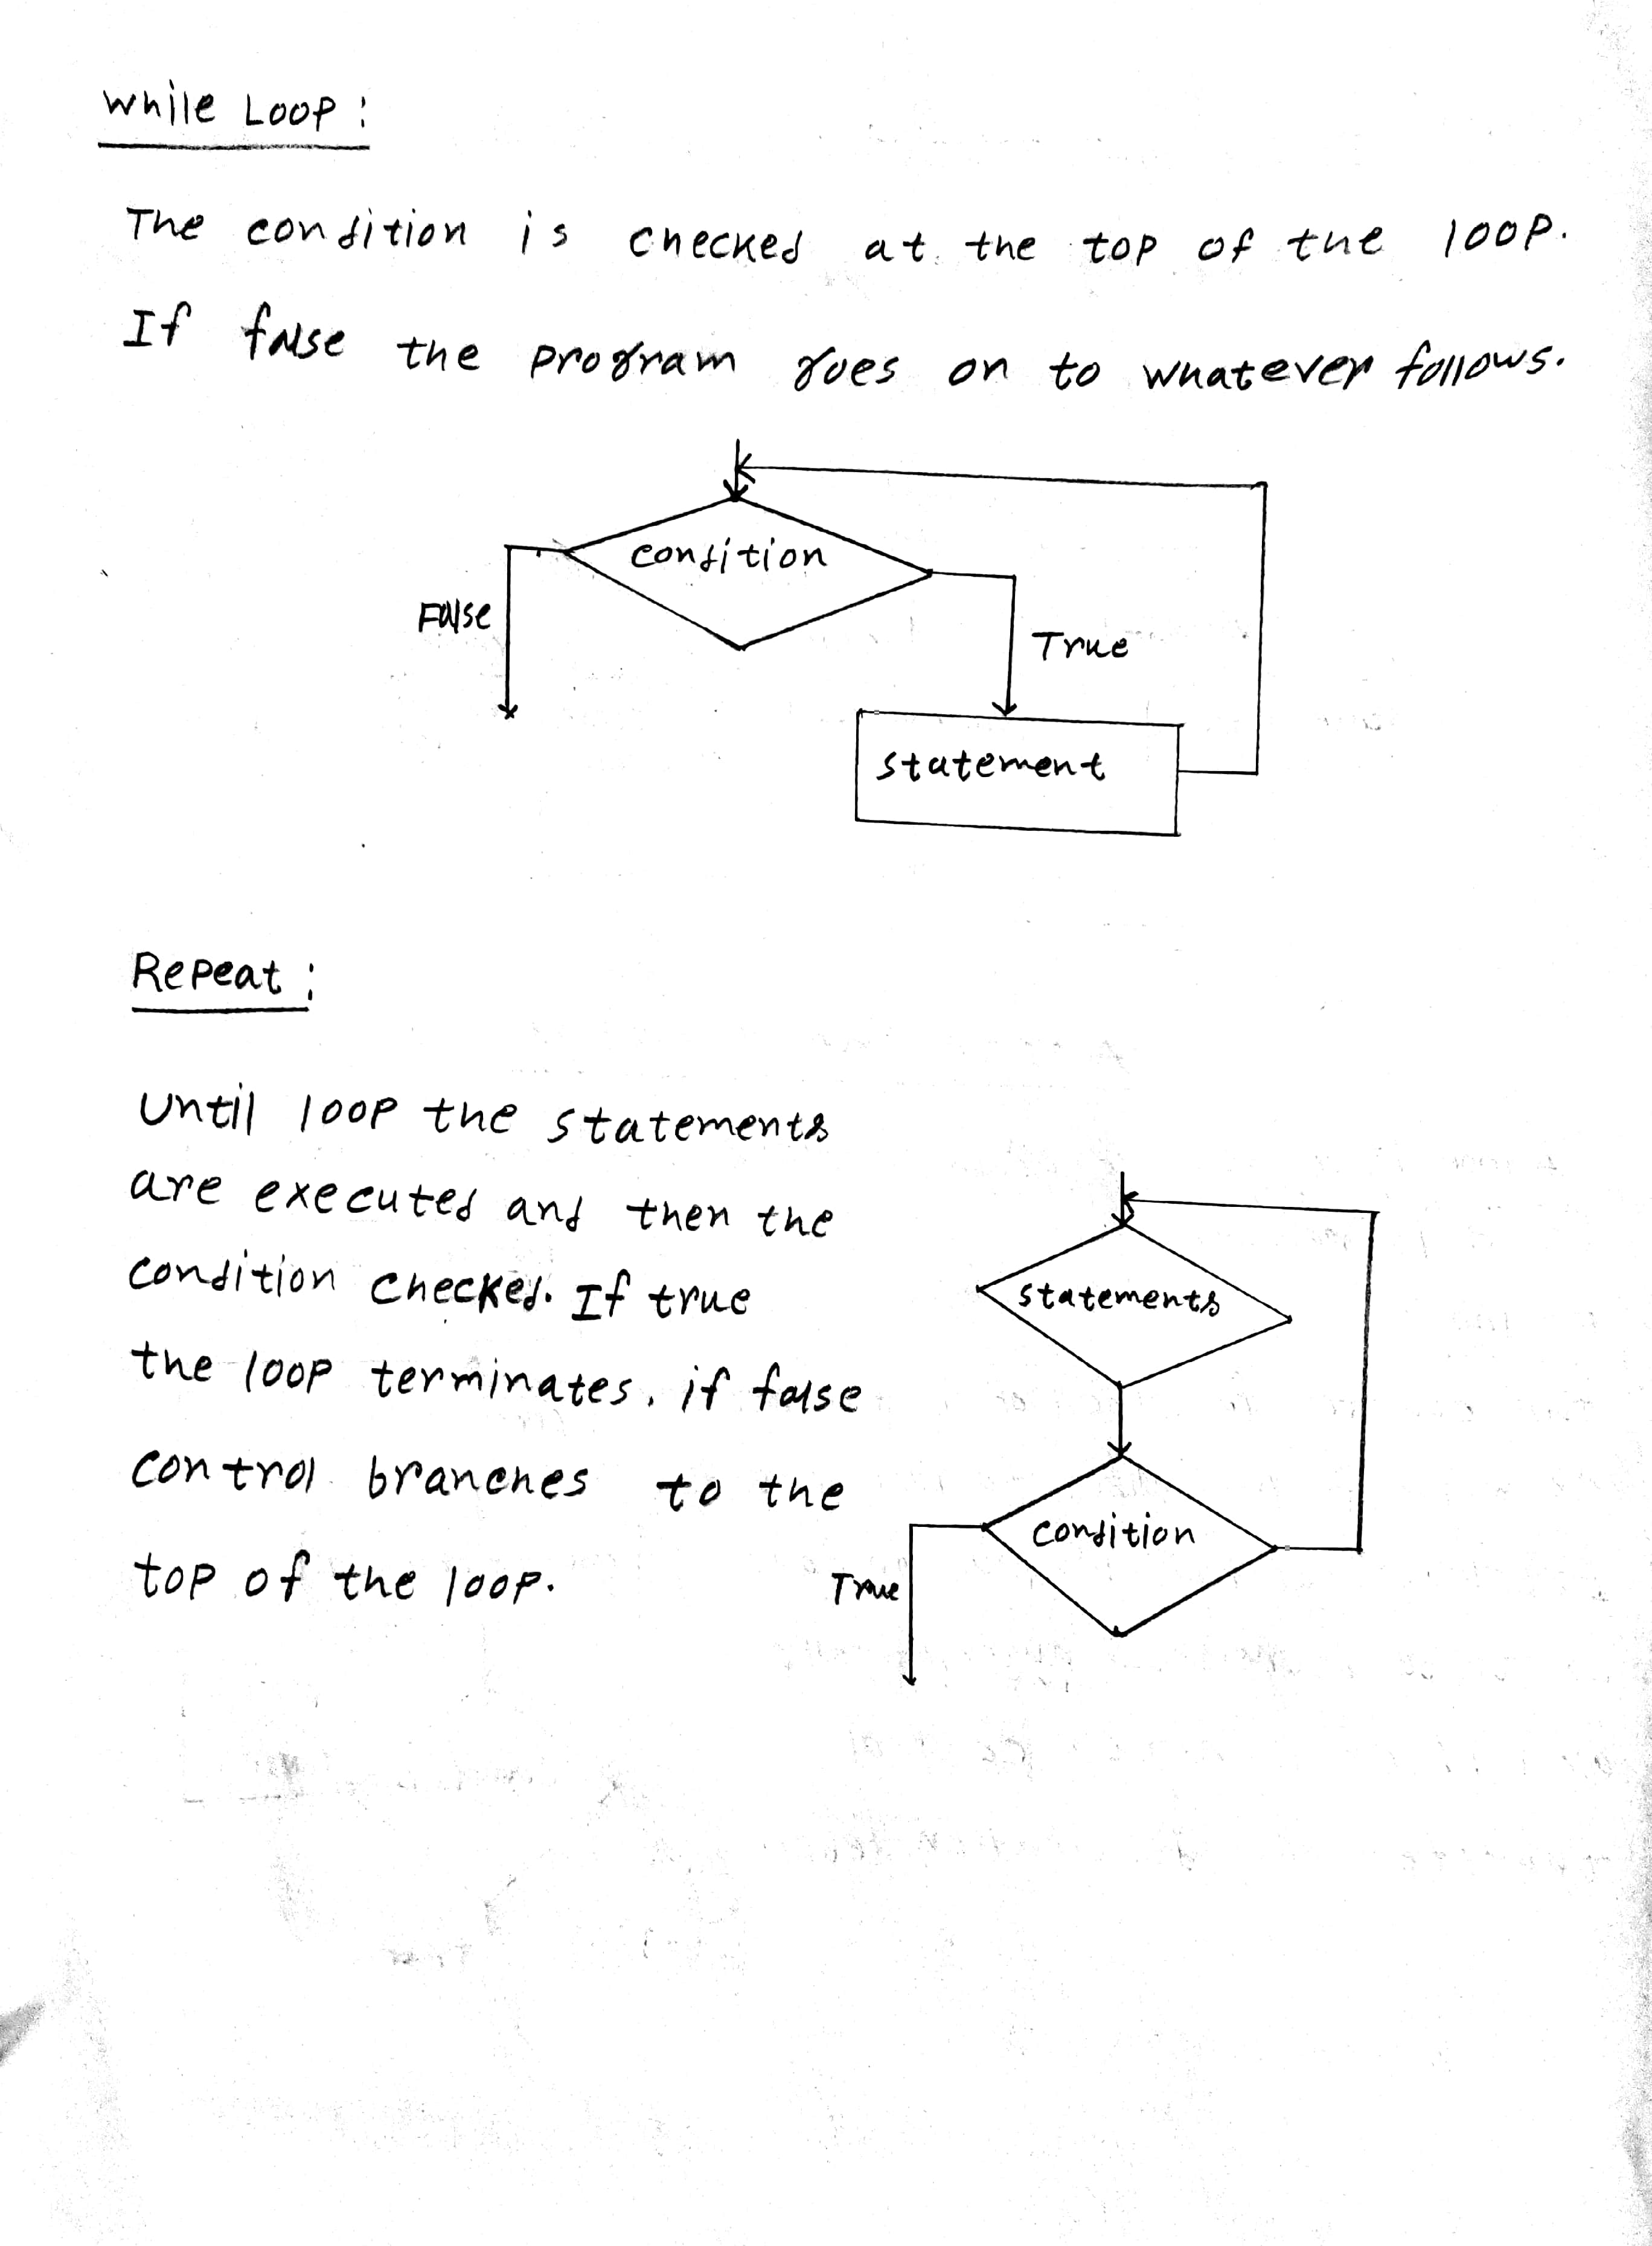 while Loop :
The condition is checked at the top of the loop.
If false the program goes on to whatever follows.
condition
False
True
statement
Repeat :
Until loop the statements
are executed and then the
condition checked. If true
the loop terminates, if false
control branches to the
top of the loop.
statements
condition
True